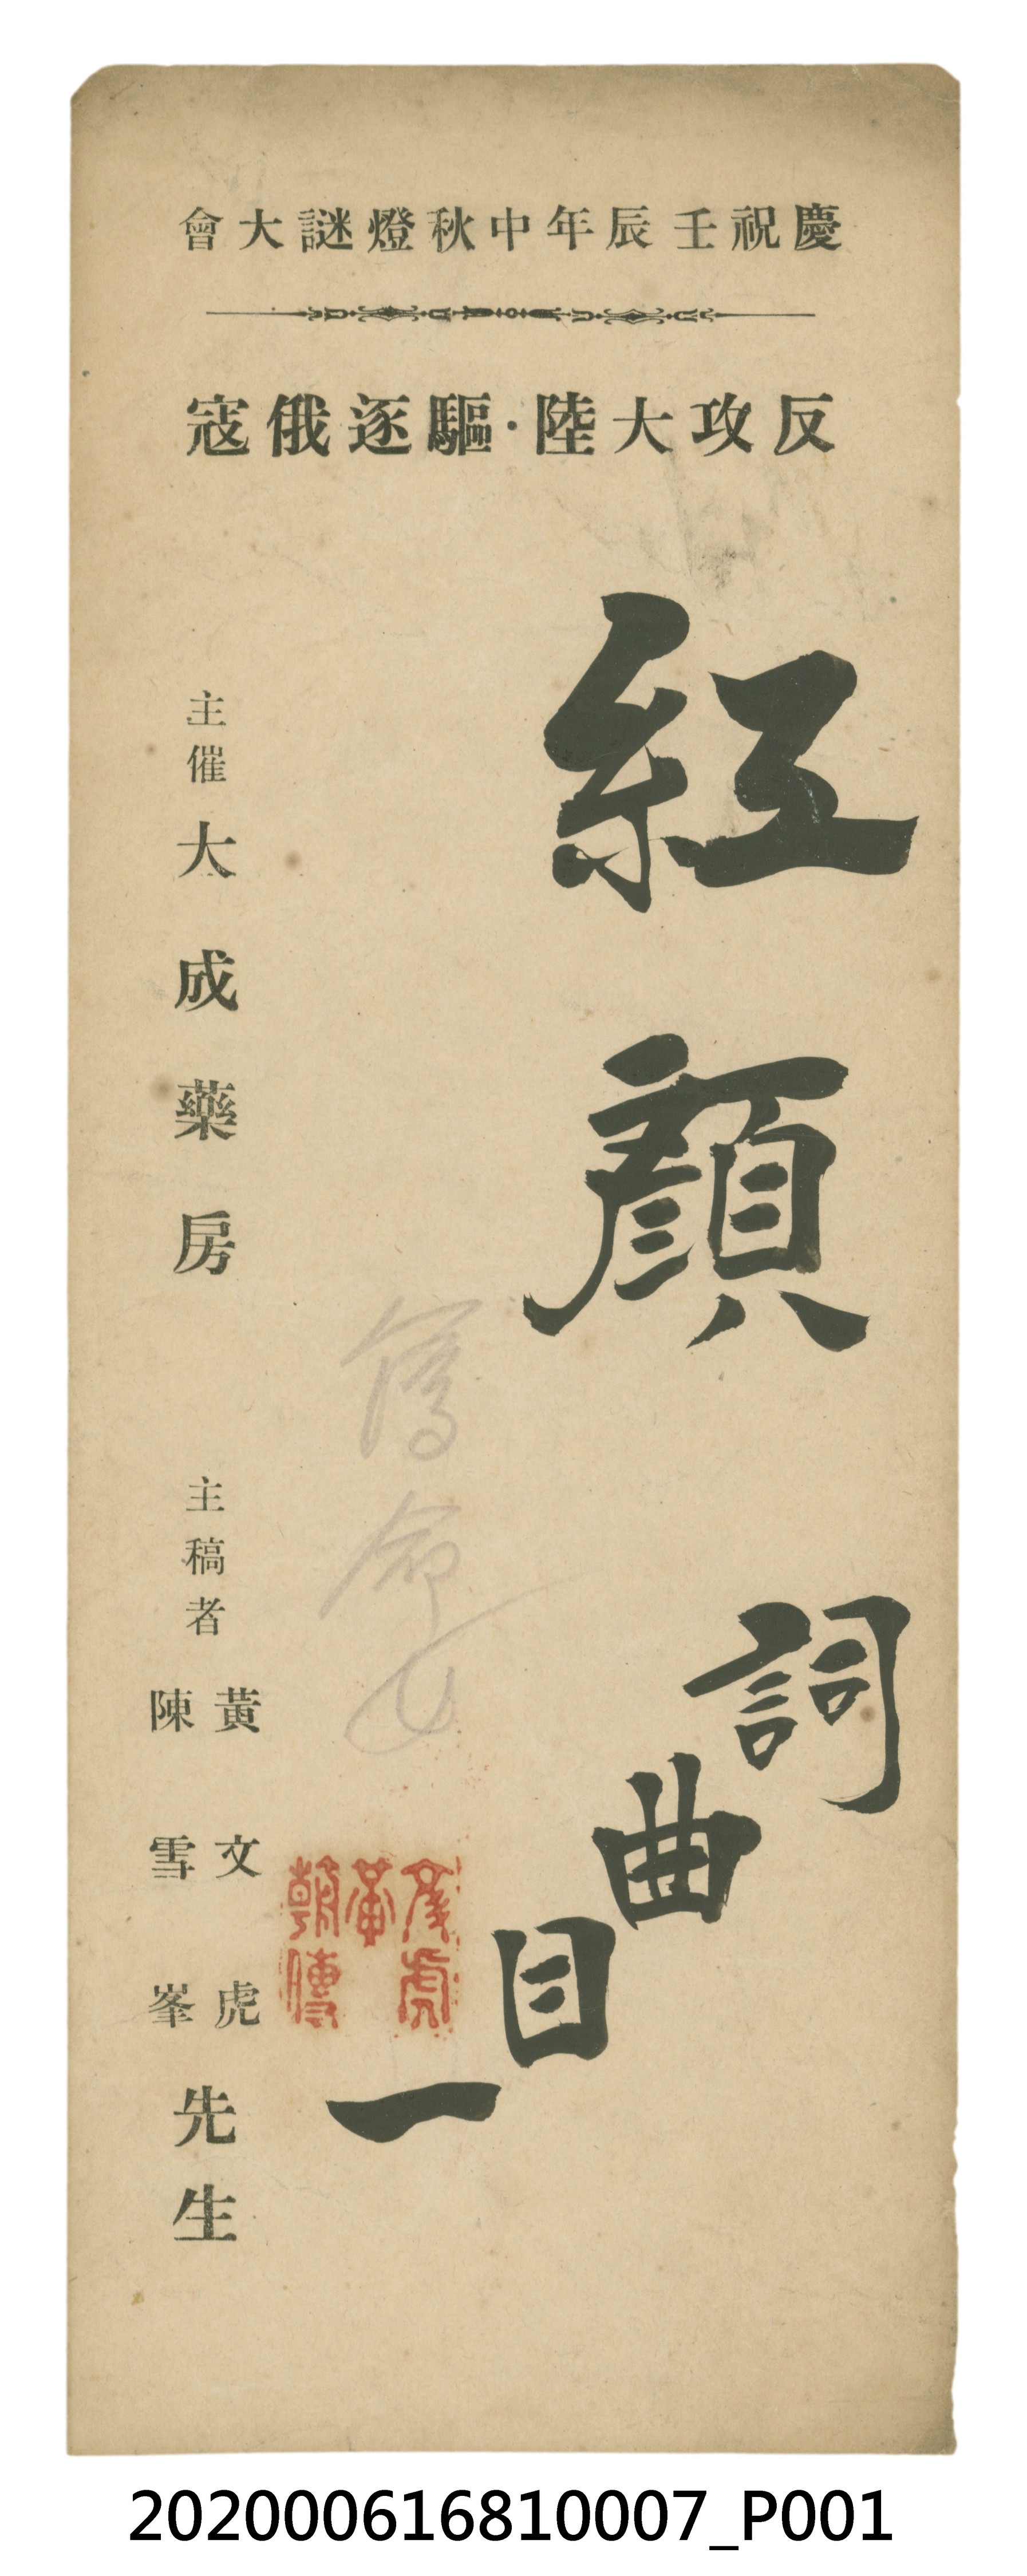 慶祝壬辰年中秋燈謎大會
反攻大陸·驅逐俄寇
紅顏
詞曲目一
薄命女
主催大成藥房
主稿者
黃文虎
陳雪峯
先生
202000616810007_P001